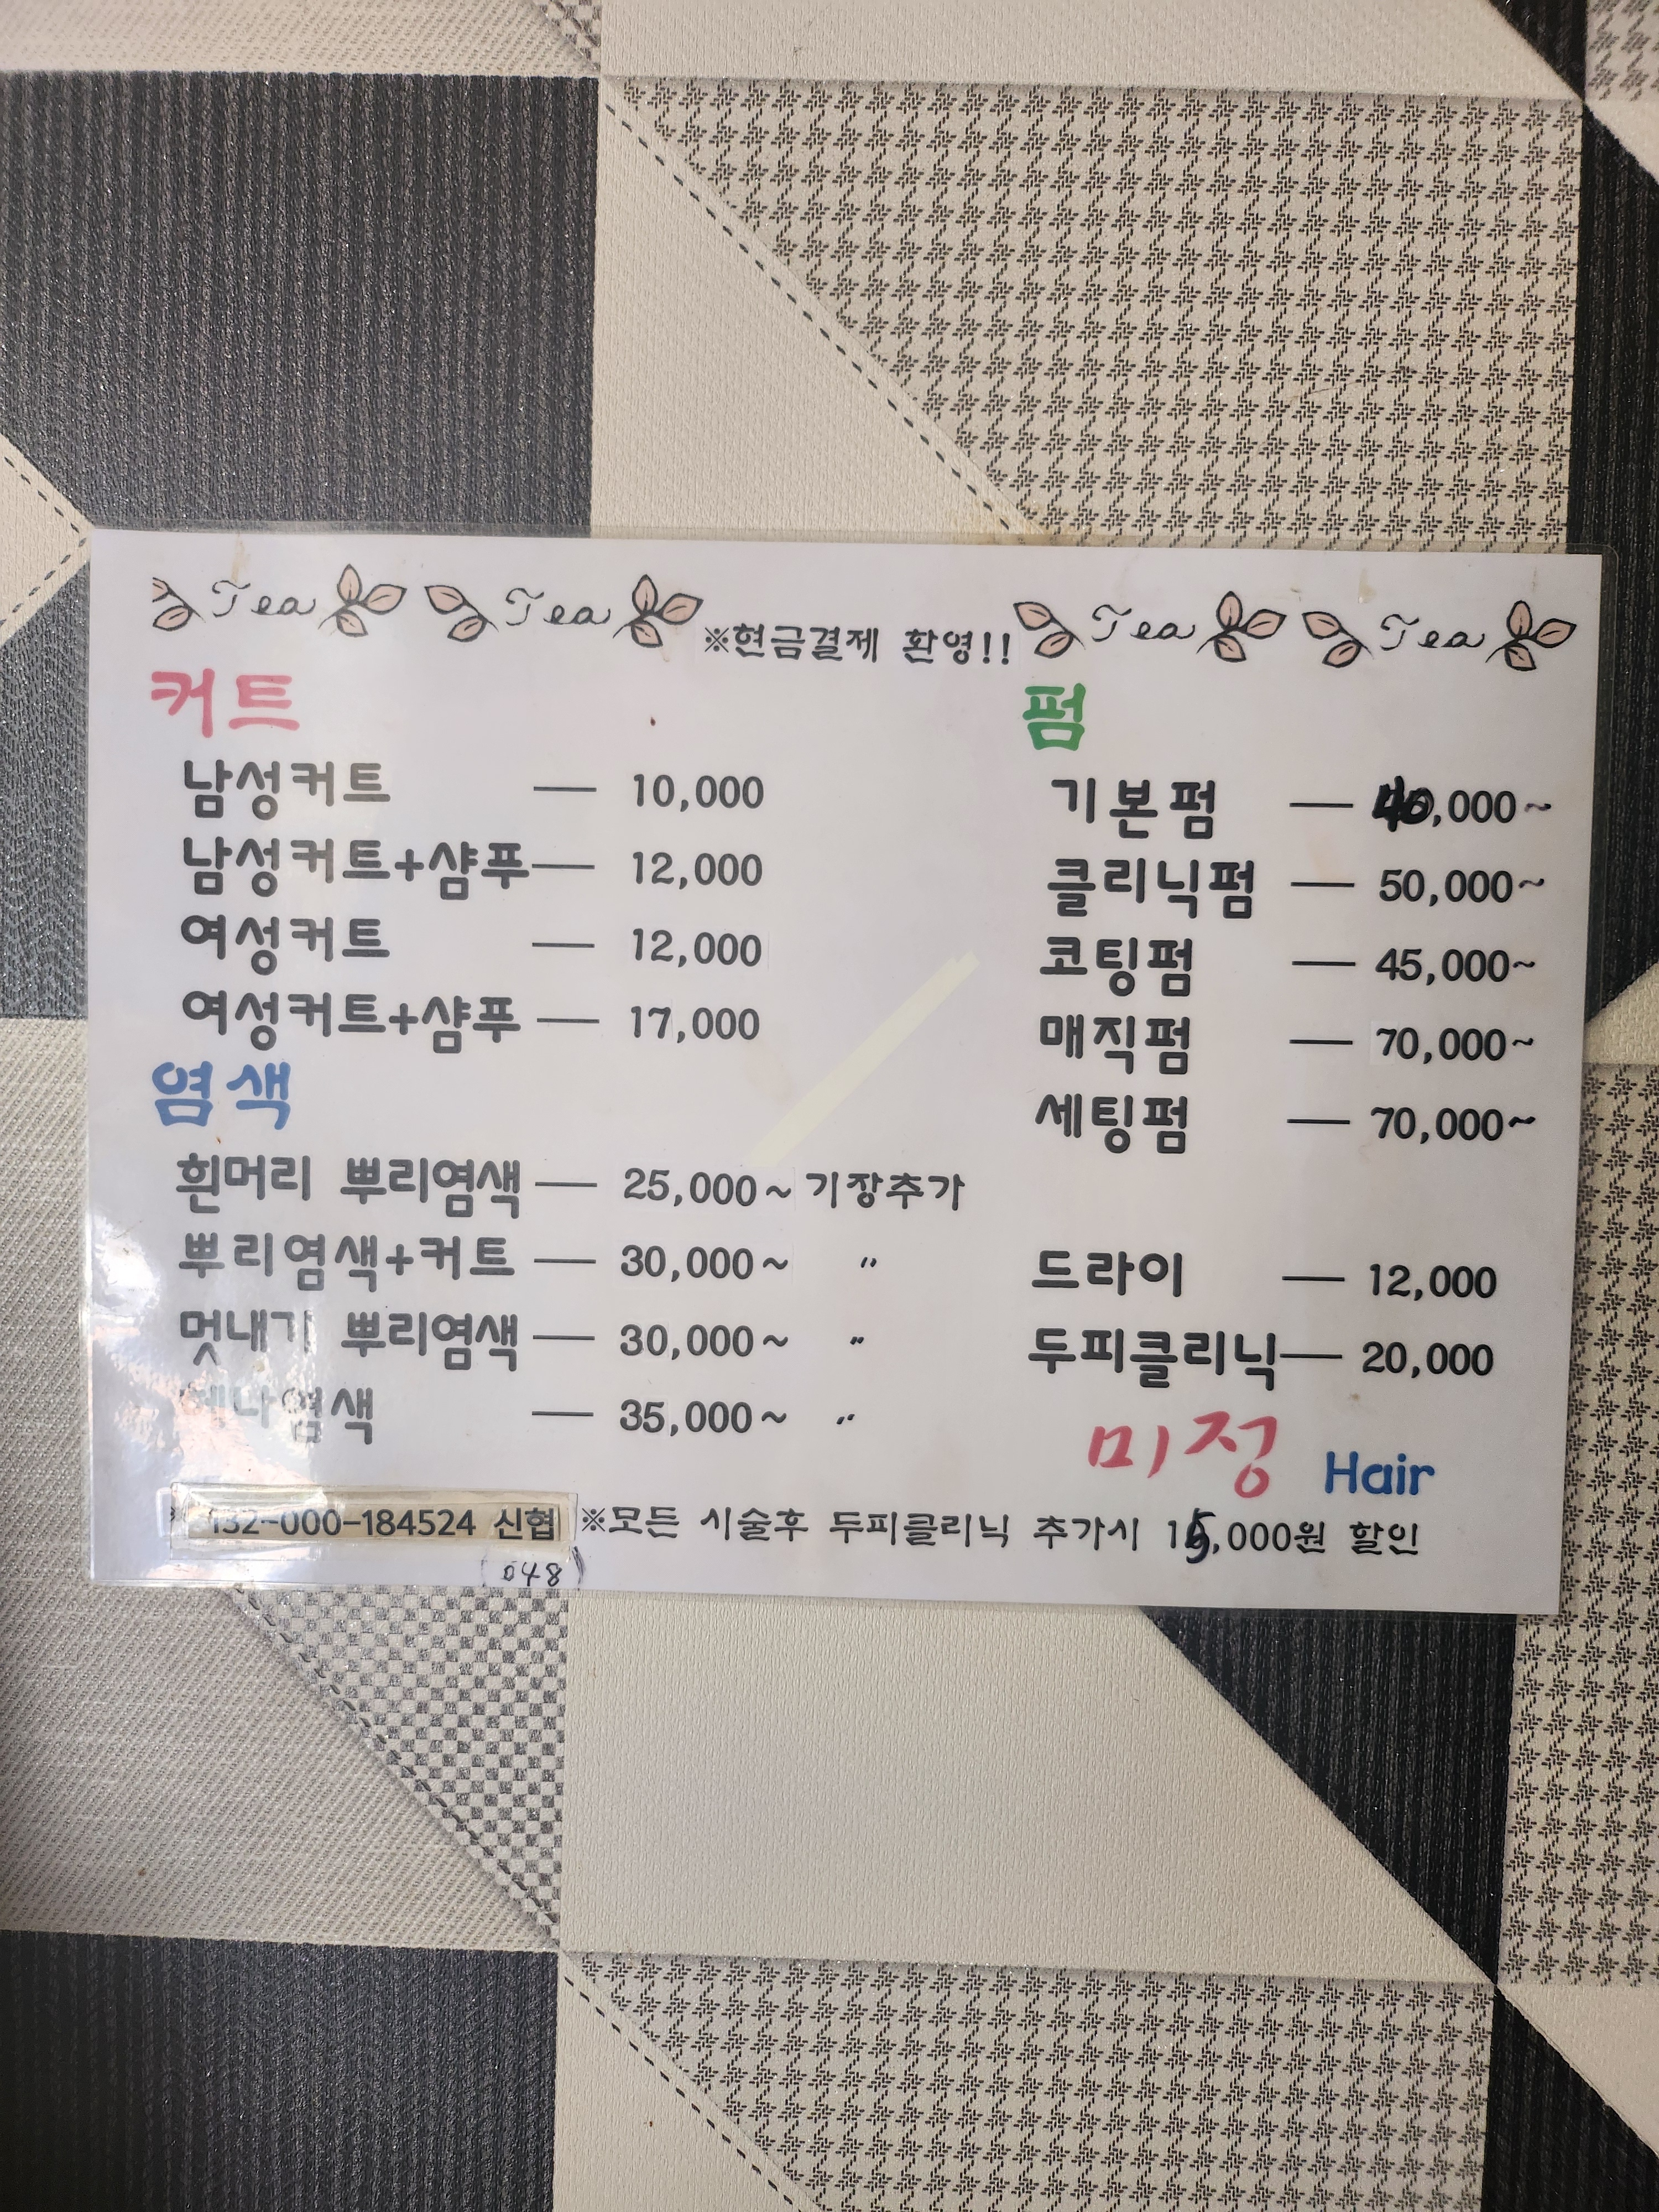 Tea Tea ※현금결제 환영!! Tea Tea
커트
남성커트 — 10,000
남성커트+샴푸 — 12,000
여성커트 — 12,000
여성커트+샴푸 — 17,000
염색
흰머리 뿌리염색 — 25,000~ 기장추가
뿌리염색+커트 — 30,000~ 〃
멋내기 뿌리염색 — 30,000~ 〃
헤나염색 — 35,000~ 〃
펌
기본펌 — 40,000~
클리닉펌 — 50,000~
코팅펌 — 45,000~
매직펌 — 70,000~
세팅펌 — 70,000~
드라이 — 12,000
두피클리닉 — 20,000
미정 Hair
132-000-184524 신협
(048)
※모든 시술후 두피클리닉 추가시 15,000원 할인